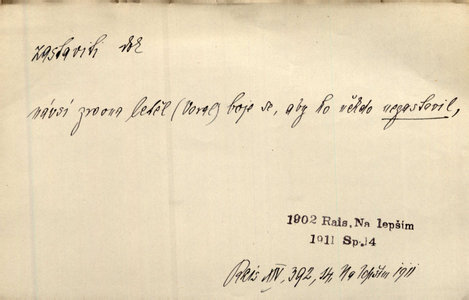 zastaviti dok
návsí zrovna letěl (Voral) boje se, aby ho někdo nezastavil,
1902 Rais, Na lepším
1911 Sp.14
Rais XIV, 392, Na lepším 1911